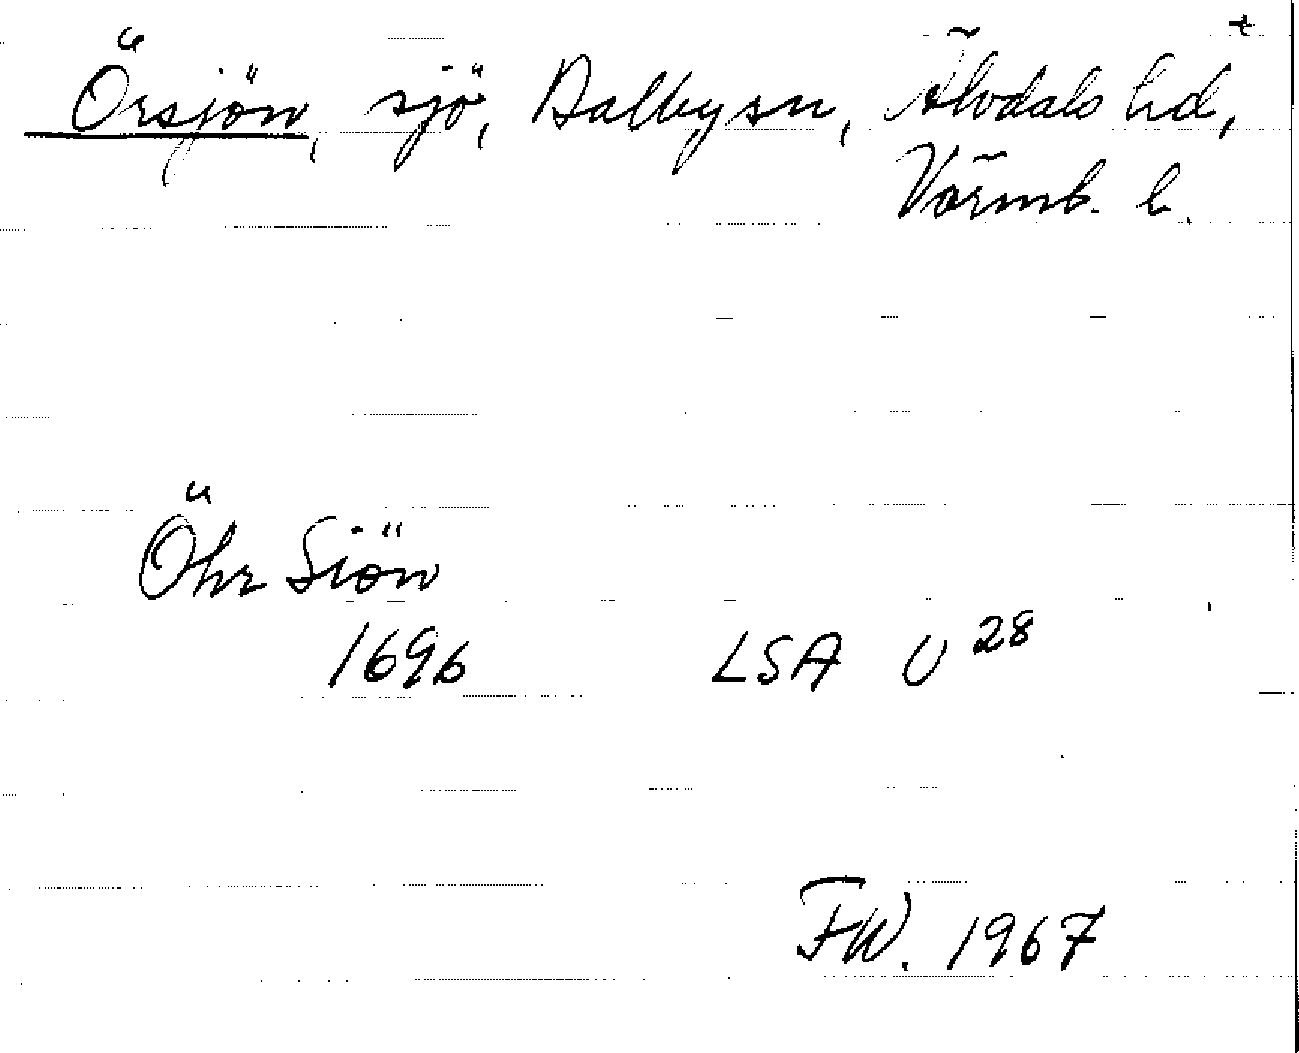 Örsjön, sjö, Dalby sn, Älvdals hd,
Värml. l.
Öhr Siön
1696 LSA U 28
FW. 1967